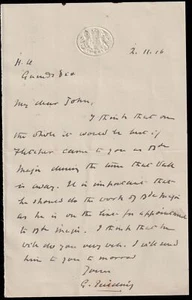 2.11.16
H.Q
Guards Div.
My dear John,
I think that on
the whole it would be best if
Fletcher came to you as Bde
Major during the time that
is away. It is important that
he should do the work of Bde Major
as he is on the list for appointment
to Bde Major. I think that he
will do you very well. I will send
him to you to morrow
Yours
G. Feilding